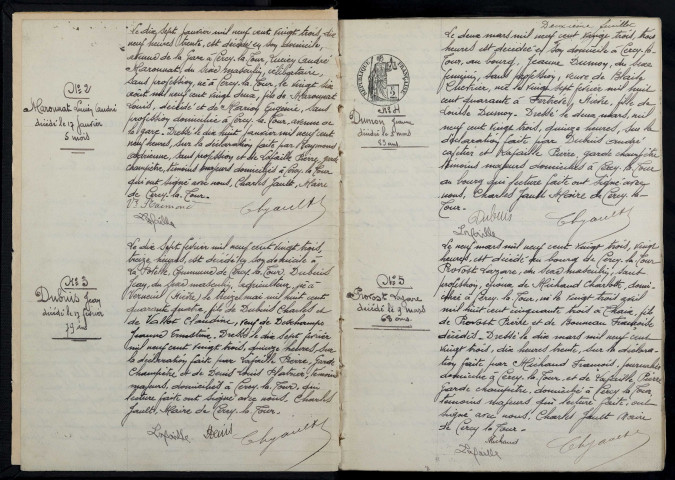 N° 2
Marounat Lucien André
décédé le 17 janvier
5 mois
Le dix sept janvier mil neuf cent vingt trois, dix
neuf heures trente, est décédé en son domicile,
avenue de la Gare à Cercy-la-Tour, Lucien André
Marounat, du sexe masculin, célibataire,
sans profession, né à Cercy-la-Tour, le vingt six
août mil neuf cent vingt deux, fils de Marounat
Louis, décédé et de Marion Eugénie, sans
profession domiciliée à Cercy-la-Tour, avenue de
la gare. Dressé le dix huit janvier mil neuf cent
vingt trois, neuf heures, sur la déclaration faite par Raymond
Adrienne, sans profession et de Lafaille Pierre, garde
champêtre, témoins majeurs domiciliés à Cercy-la-Tour
qui ont signé avec nous, Charles Jault, Maire
de Cercy-la-Tour.
Lafaille
N° 3
Dubuis Jean
décédé le 17 février
79 ans
Le dix sept février mil neuf cent vingt trois,
treize heures, est décédé en son domicile à
Commune de Cercy-la-Tour, Dubuis
Jean, du sexe masculin, agriculteur, né à
Verneuil Nièvre, le treize mai mil huit cent
quarante fils de Dubuis Charles et
de Claudine, veuf de Deschamps
Jeanne Ernestine. Dressé le dix sept février
mil neuf cent vingt trois, quinze heures, sur
la déclaration faite par Lafaille Pierre, garde
champêtre et de Denis Louis témoins
majeurs, domiciliés à Cercy-la-Tour, qui
lecture faite ont signé avec nous. Charles
Jault, Maire de Cercy-la-Tour.
Lafaille Denis
Deuxième feuillet
RÉPUBLIQUE FRANÇAISE
N° 4
Dumoy Jeanne
décédée le 2 mars
83 ans
Le deux mars mil neuf cent vingt trois, trois
heures est décédée en son domicile à Cercy-la-
Tour, au bourg, Jeanne Dumoy, du sexe
féminin, sans profession, veuve de Blaise
né le vingt février mil huit
cent quarante à Nièvre, fille de
Louise Dumoy. Dressé le deux mars, mil
neuf cent vingt trois, quinze heures, sur la
déclaration faite par Dubuis André
et Lafaille Pierre, garde champêtre
témoins majeurs domiciliés à Cercy-la-Tour
au bourg qui lecture faite ont signé avec
nous, Charles Jault Maire de Cercy-la-
Tour.
Dubuis
Lafaille
N° 5
Provost Lazare
décédé le 9 mars
68 ans
Le neuf mars mil neuf cent vingt trois, vingt
heures, est décédé au bourg de Cercy-la-Tour
Provost Lazare, du sexe masculin, sans
profession, époux de Michaud Charlotte, domi-
cilié à Cercy-la-Tour, né le vingt trois avril
mil huit cent cinquante trois à fils
de Provost Pierre et de Bonneau Françoise
décédés. Dressé le dix mars mil neuf cent
vingt trois, dix heures trente, sur la déclara-
tion faite par Michaud François, journalier
domicilié à Cercy-la-Tour, et de Lafaille Pierre
garde champêtre, domicilié à Cercy-la-Tour,
témoins majeurs qui lecture faite, ont
signé avec nous. Charles Jault Maire
de Cercy-la-Tour.
Michaud
Lafaille